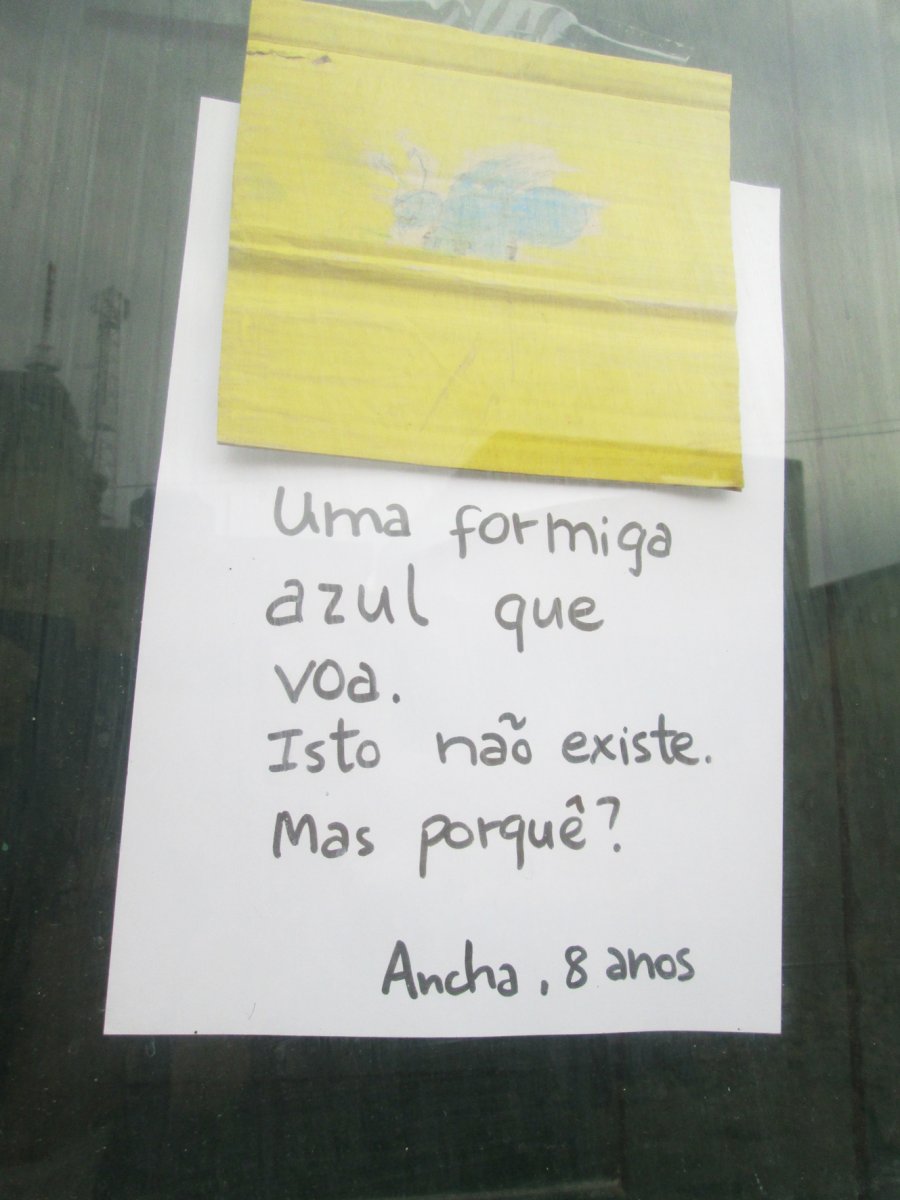 Uma formiga
azul que
voa.
Isto não existe.
Mas porquê?
Ancha, 8 anos